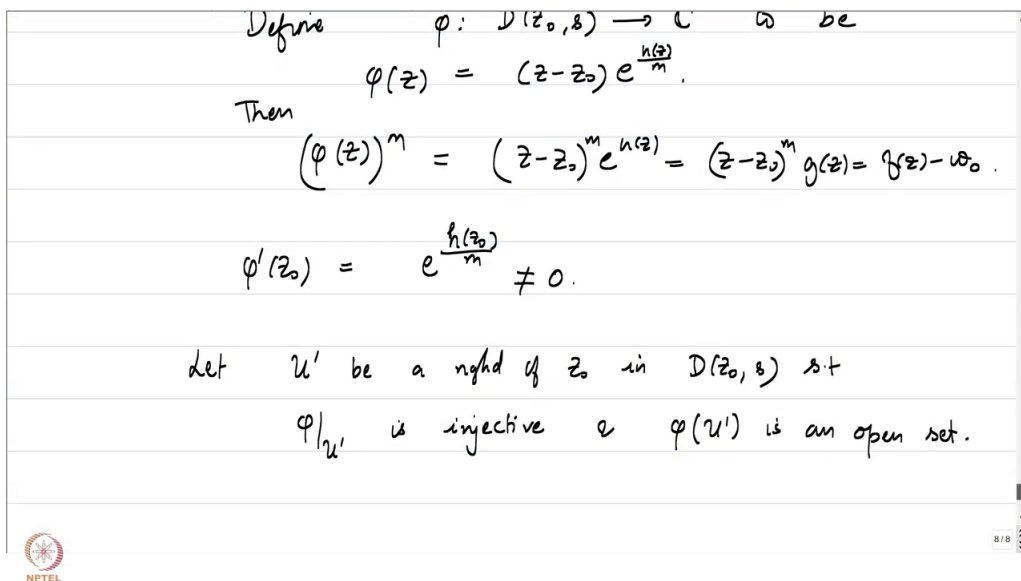 Define φ: D(z₀, s) → ℂ to be
φ(z) = (z-z₀) e^{h(z)/m}.
Then
(φ(z))^m = (z-z₀)^m e^{h(z)} = (z-z₀)^m g(z) = f(z) - w₀.
φ'(z₀) = e^{h(z₀)/m} ≠ 0.
Let U' be a nghd of z₀ in D(z₀, s) s.t
φ|_{U'} is injective & φ(U') is an open set.
8/8
NPTEL